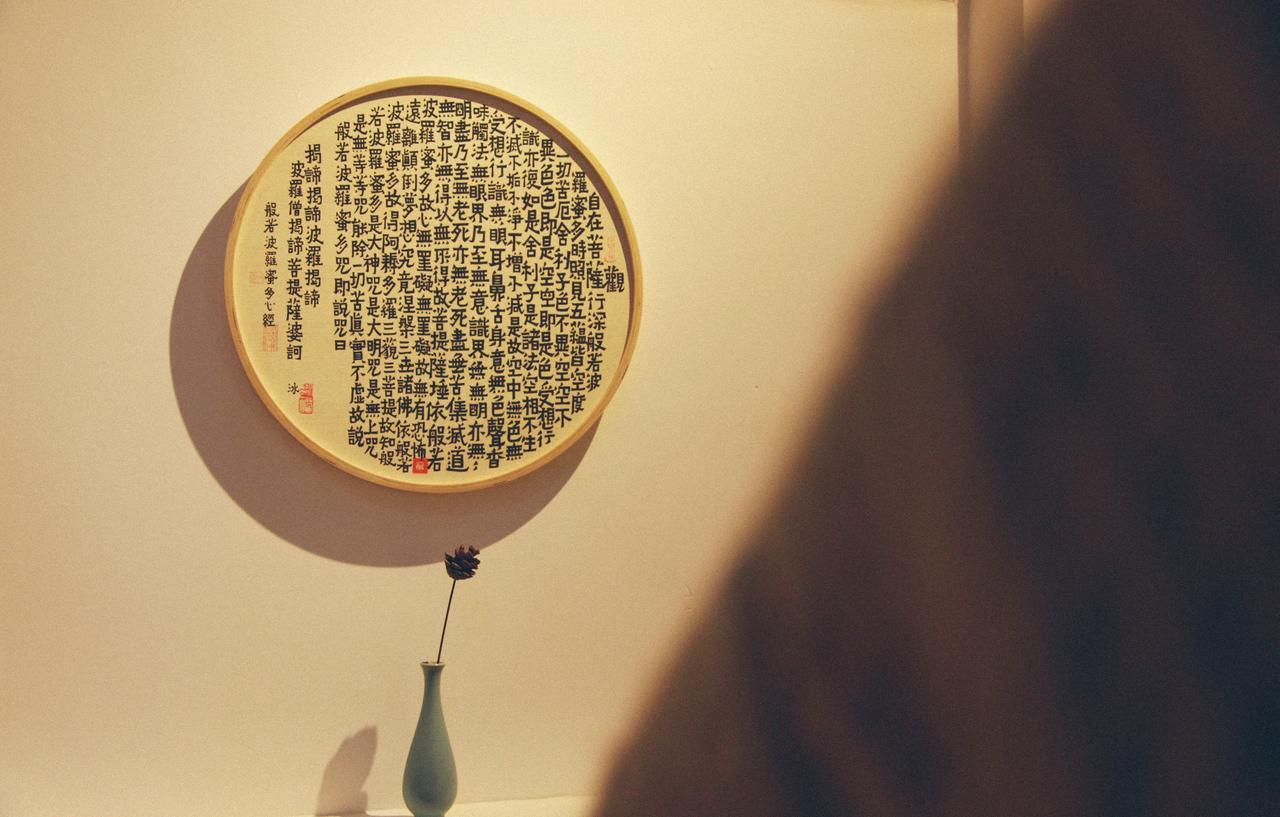 觀
自在菩薩行深般若波
羅蜜多時照見五蘊皆空度
一切苦厄舍利子色不異空空不
異色色即是空空即是色受想行
識亦復如是舍利子是諸法空相不生
不滅不垢不淨不增不減是故空中無色無
受想行識無眼耳鼻舌身意無色聲香
味觸法無眼界乃至無意識界無無明亦無
明盡乃至無老死亦無老死盡無苦集滅道
無智亦無得以無所得故菩提薩埵依般若
波羅蜜多故心無罣礙無罣礙故無有恐怖
遠離顛倒夢想究竟涅槃三世諸佛依般若
波羅蜜多故得阿耨多羅三藐三菩提故知般
若波羅蜜多是大神咒是大明咒是無上咒
是無等等咒能除一切苦眞實不虛故説
般若波羅蜜多咒即説咒曰
揭諦揭諦波羅揭諦
波羅僧揭諦菩提薩婆訶
冰
般若波羅蜜多心經